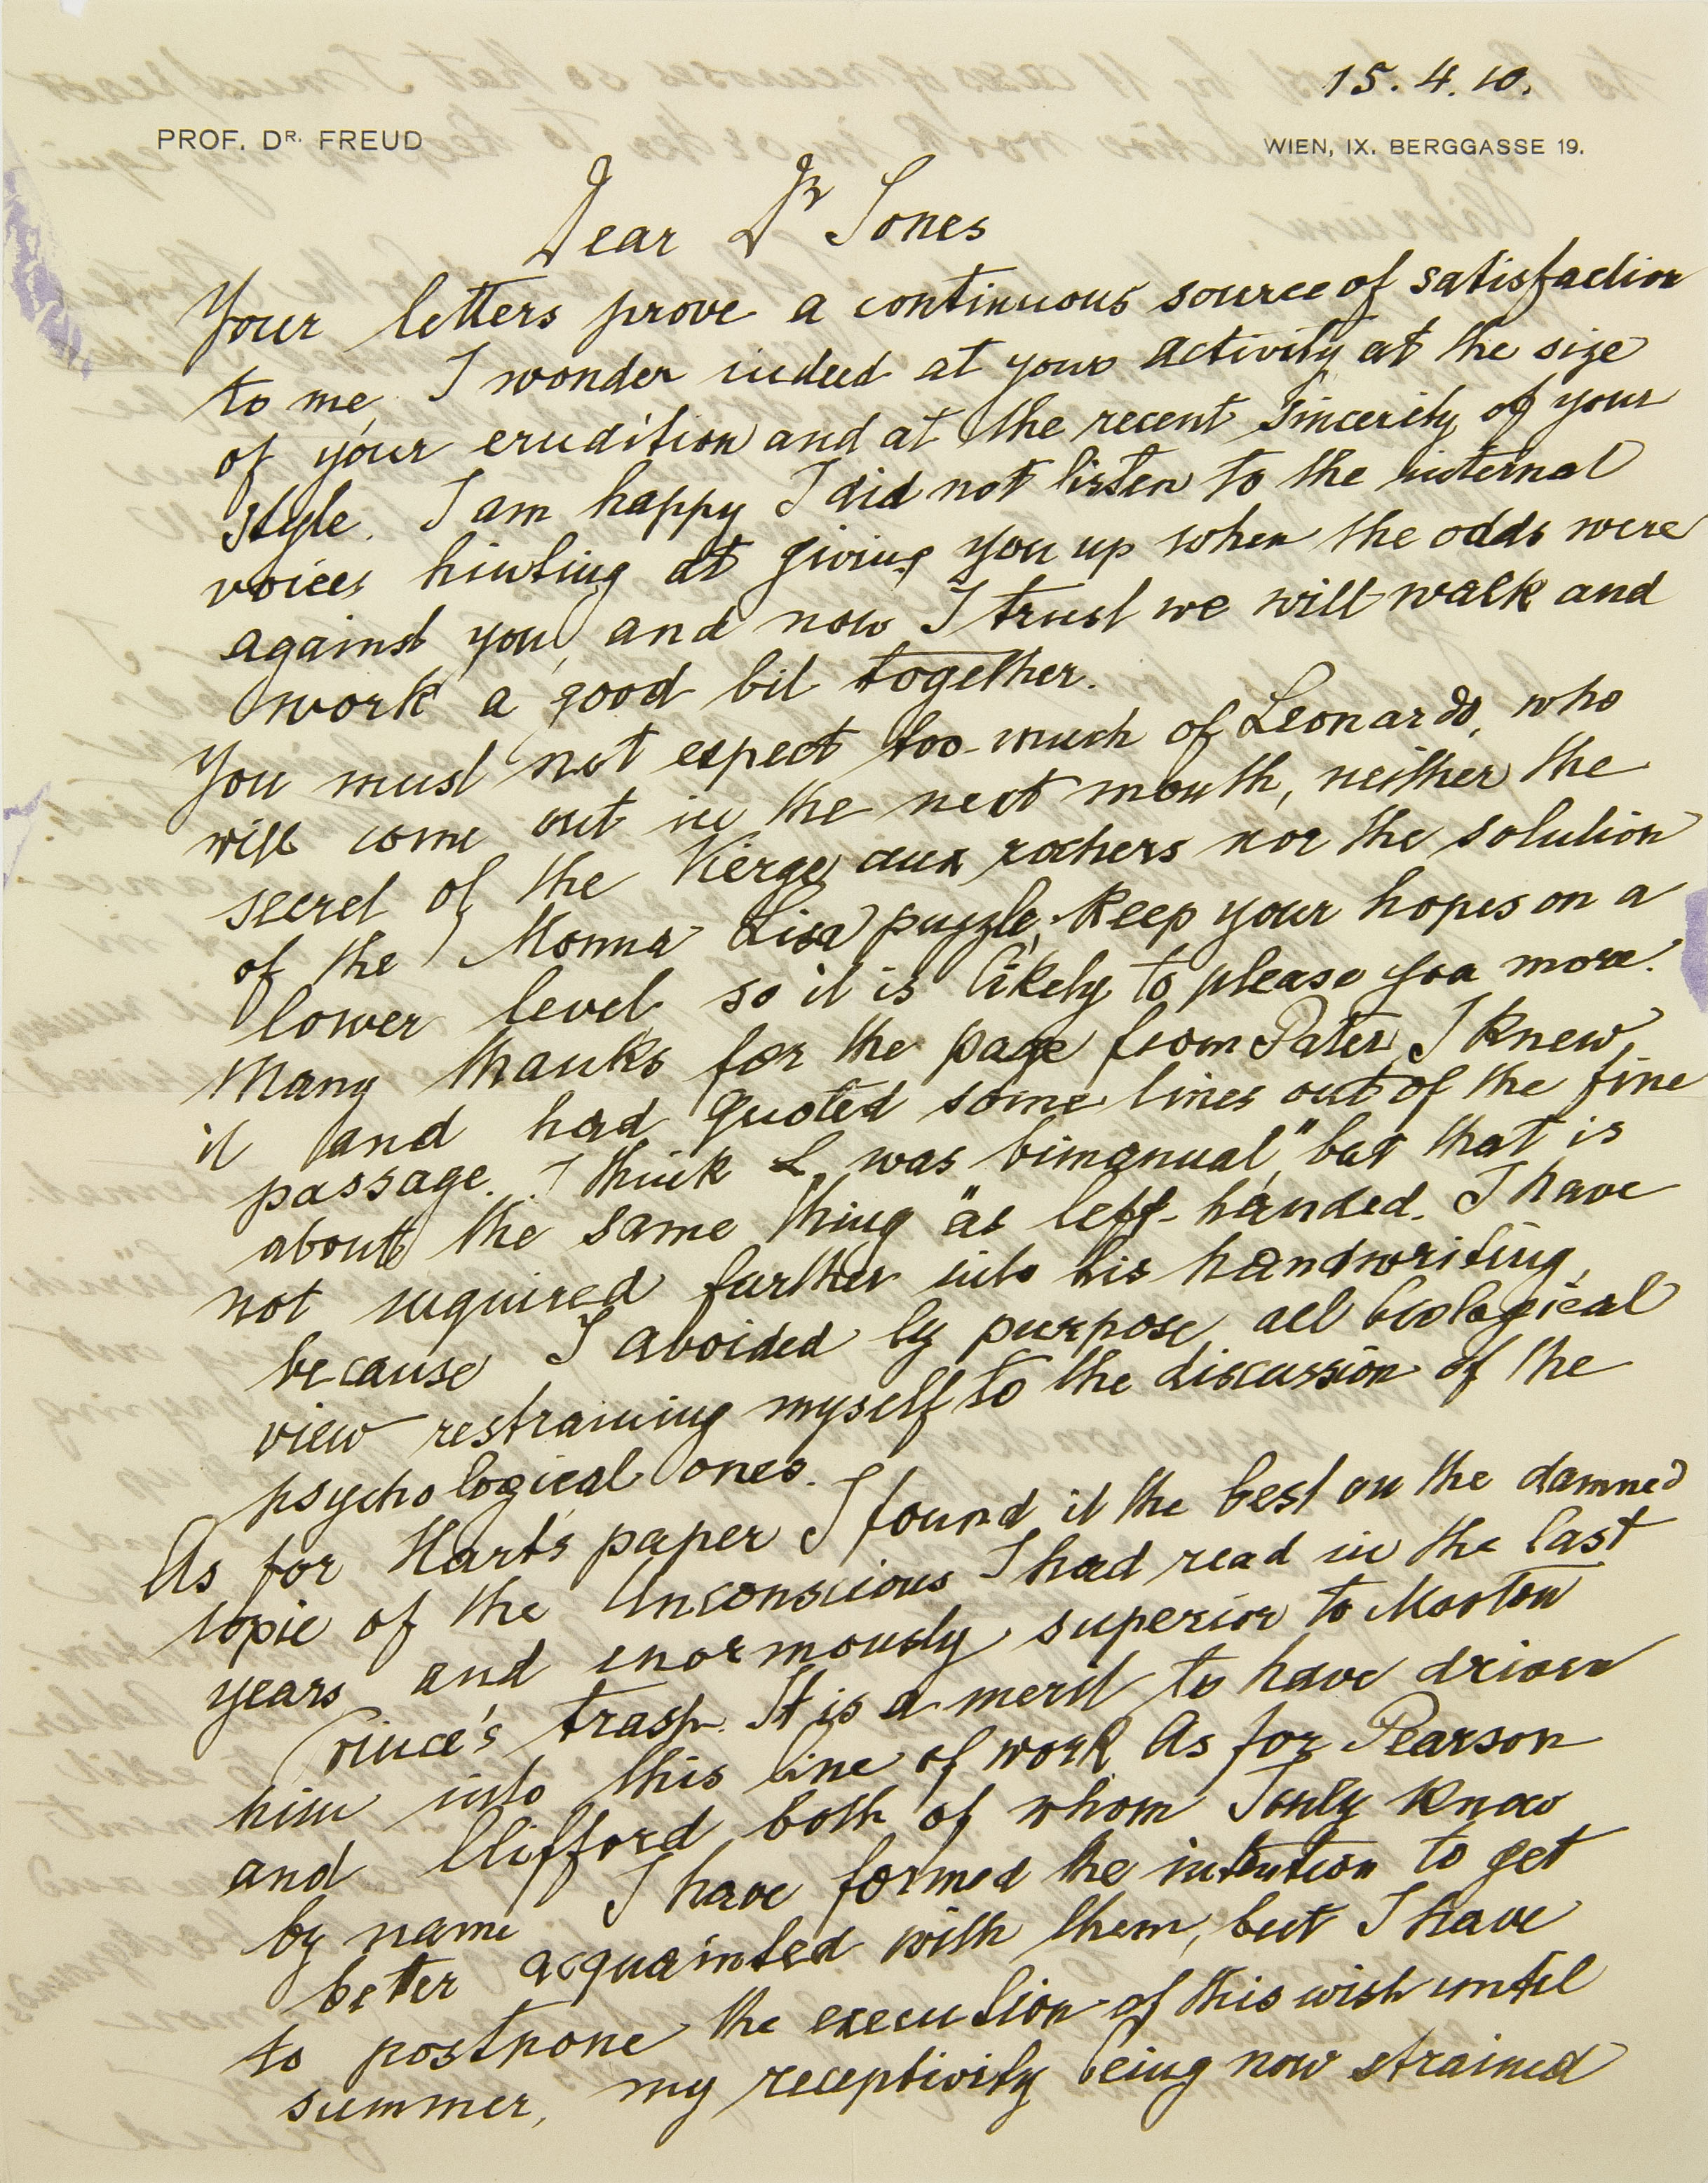 15. 4. 10.
PROF. DR. FREUD
WIEN, IX. BERGGASSE 19.
Dear Dr Jones
Your letters prove a continuous source of satisfaction
to me. I wonder indeed at your activity, at the size
of your erudition and at the recent sincerity of your
style. I am happy I did not listen to the internal
voices hinting at giving you up when the odds were
against you, and now I trust we will walk and
work a good bit together.
You must not expect too much of Leonardo, who
will come out in the next month, neither the
secret of the Vierge aux rochers nor the solution
of the Monna Lisa puzzle; keep your hopes on a
lower level, so it is likely to please you more.
Many thanks for the page from Pater, I knew
it and had quoted some lines out of the fine
passage. I think L. was "bimanual", but that is
about the same thing as left-handed. I have
not inquired further into his handwriting,
because I avoided by purpose all biological
view restraining myself to the discussion of the
psychological ones.
As for Hart's paper I found it the best on the damned
topic of the Unconscious I had read in the last
years and enormously superior to Morton
Prince's trash. It is a merit to have driven
him into this line of work. As for Pearson
and Clifford both of whom I only know
by name I have formed the intention to get
better acquainted with them, but I have
to postpone the execution of this wish until
summer, my receptivity being now strained